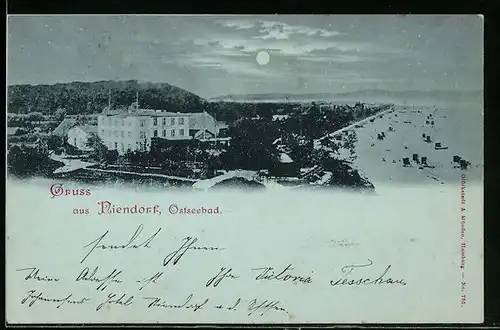 Gruss
aus Niendorf, Ostseebad.
sendet Ihnen
Ihre Victoria Tesschau
Meine Adresse ist
Johannsens Hotel Niendorf a. d. Ostsee
Glückstadt & Münden, Hamburg — No. 765.